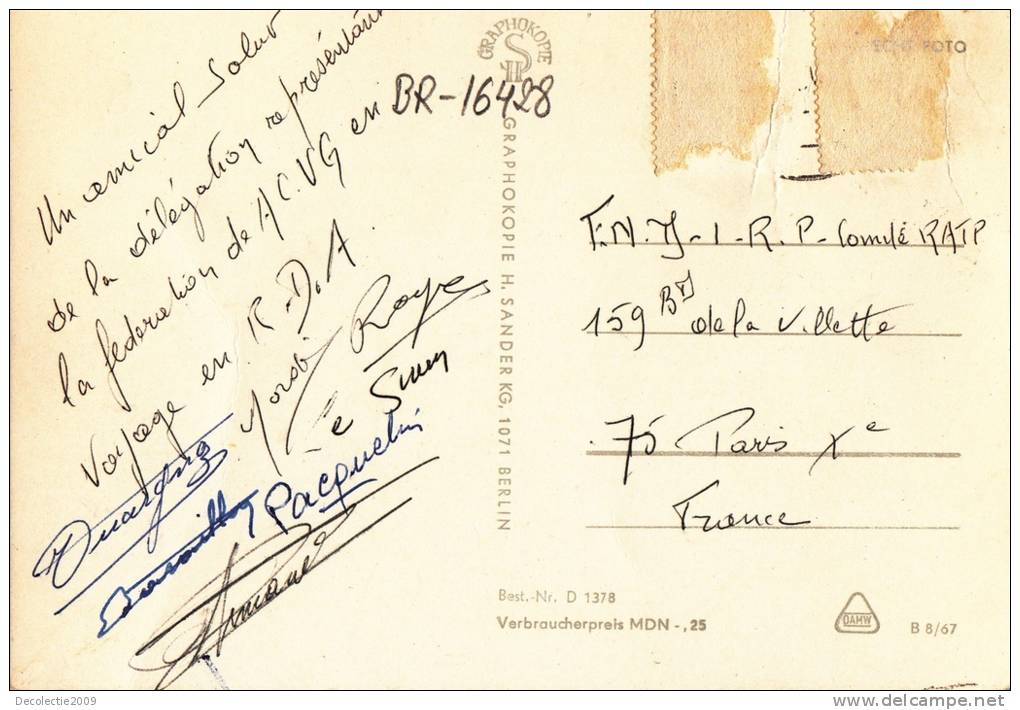 Un amical Salut
de la délégation représentant
la federation de A C. VG en
Voyage en R. D. A
Roye
Le
Pacquelin
Armand
BR-16428
GRAPHOKOPIE
SH
GRAPHOKOPIE H. SANDER KG, 1071 BERLIN
ECHT FOTO
I. R. P - Comité RATP
159 Bd de la Villette
75 Paris Xe
France
Best.-Nr. D 1378
Verbraucherpreis MDN -,25
DAMW
B 8/67
Decolectie2009
www.delcampe.net